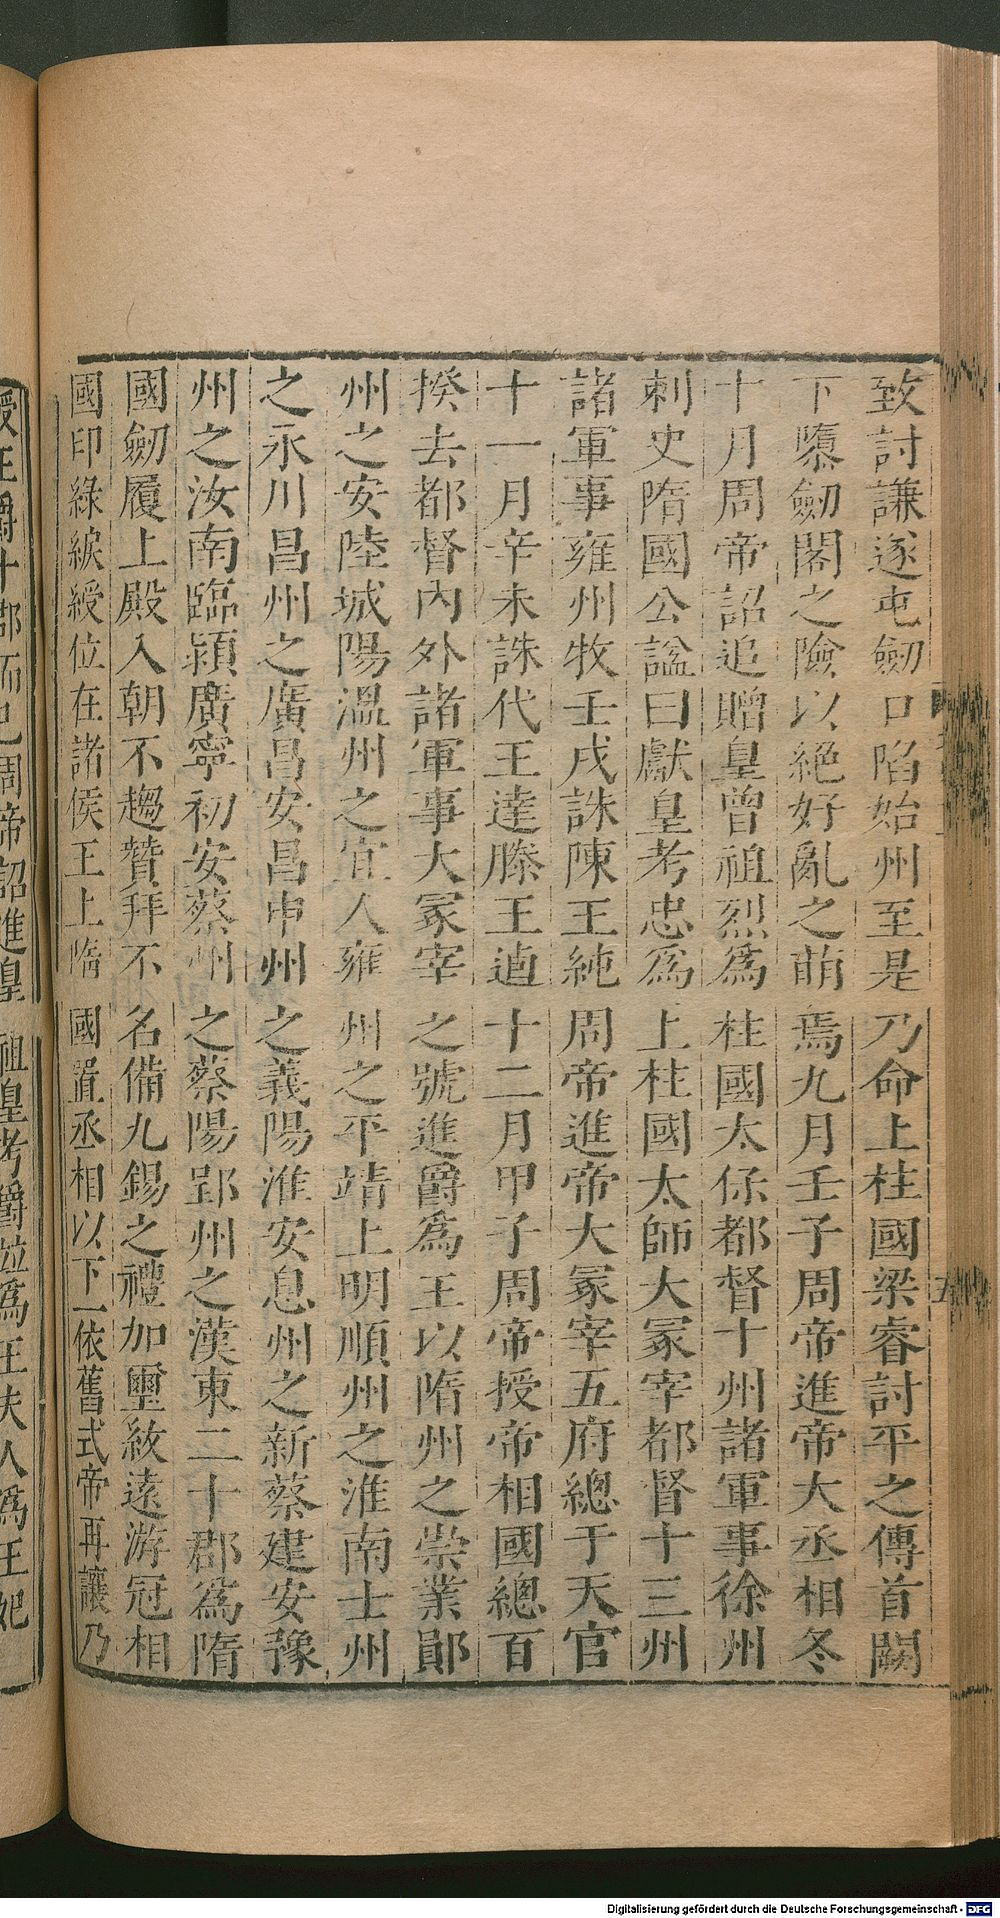 致討謙遂屯劒口陷始州至是乃命上柱國梁睿討平之傳首闕
下隳劒閣之險以絶好亂之萌焉九月壬子周帝進帝大丞相冬
十月周帝詔追贈皇曾祖烈爲柱國太保都督十州諸軍事徐州
刺史隋國公諡曰獻皇考忠爲上柱國太師大冢宰都督十三州
諸軍事雍州牧壬戌誅陳王純周帝進帝大冢宰五府總于天官
十一月辛未誅代王達滕王逌十二月甲子周帝授帝相國總百
揆去都督內外諸軍事大冢宰之號進爵爲王以隋州之崇業鄖
州之安陸城陽溫州之宜人雍州之平靖上明順州之淮南士州
之永川昌州之廣昌安昌申州之義陽淮安息州之新蔡建安豫
州之汝南臨潁廣寧初安蔡州之蔡陽郢州之漢東二十郡爲隋
國劒履上殿入朝不趨贊拜不名備九錫之禮加璽紱遠游冠相
國印綠綟綬位在諸侯王上隋國置丞相以下一依舊式帝再讓乃
受王爵十郡而已周帝詔進皇祖皇考爵竝爲王夫人爲王妃
五
Digitalisierung gefördert durch die Deutsche Forschungsgemeinschaft - DFG